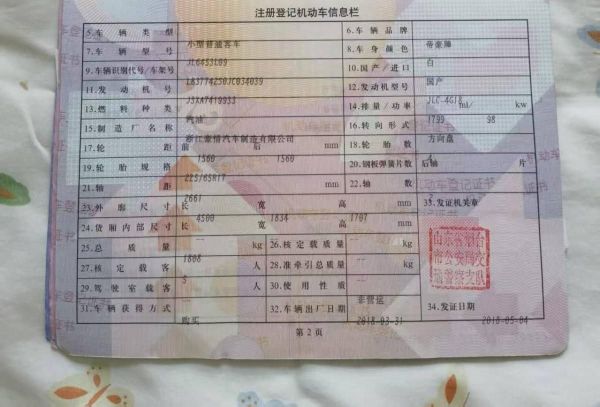 注册登记机动车信息栏
5.车辆类型 小型普通客车 6.车辆品牌 帝豪牌
7.车辆型号 JL6453L09 8.车身颜色 白
9.车辆识别代号/车架号 LB3774250JC034039 10.国产/进口 国产
11.发动机号 J3XA7419933 12.发动机型号 JLC-4G18
13.燃料种类 汽油 14.排量/功率 1799 ml/ 98 kw
15.制造厂名称 浙江豪情汽车制造有限公司 16.转向形式 方向盘
17.轮距 前 1560 后 1560 mm 18.轮胎数 4
19.轮胎规格 225/65R17 20.钢板弹簧片数 后轴 片
21.轴距 2661 mm 22.轴数
23.外廓尺寸 长 4500 宽 1834 高 1707 mm 33.发证机关章
24.货厢内部尺寸 长 -- 宽 -- 高 -- mm
25.总质量 1808 kg 26.核定载质量 -- kg
27.核定载客 5 人 28.准牵引总质量 -- kg
29.驾驶室载客 -- 人 30.使用性质 非营运
31.车辆获得方式 购买 32.车辆出厂日期 2018-03-31 34.发证日期 2018-05-04
山东省烟台
市公安局交
通警察支队
第2页